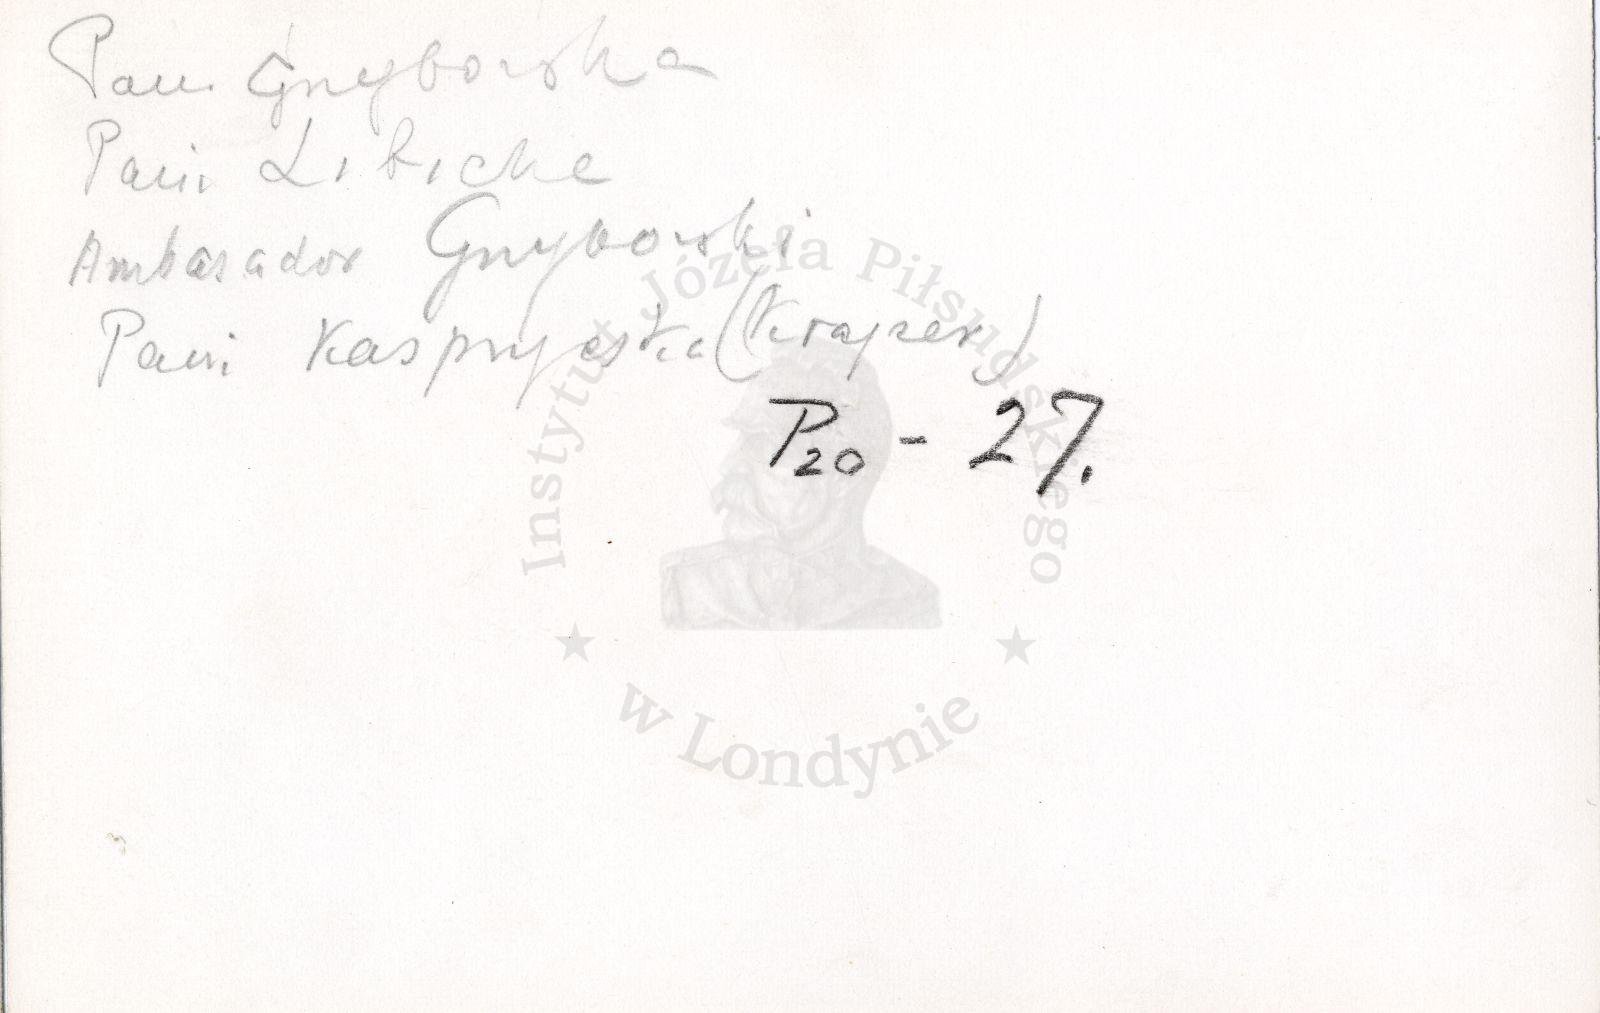 Pani Grzybowska
Pani Libicka
Ambasador Grzybowski
Pani Kasprzycka (Krajzer)
P20 - 27.
Instytut Józefa Piłsudskiego
w Londynie